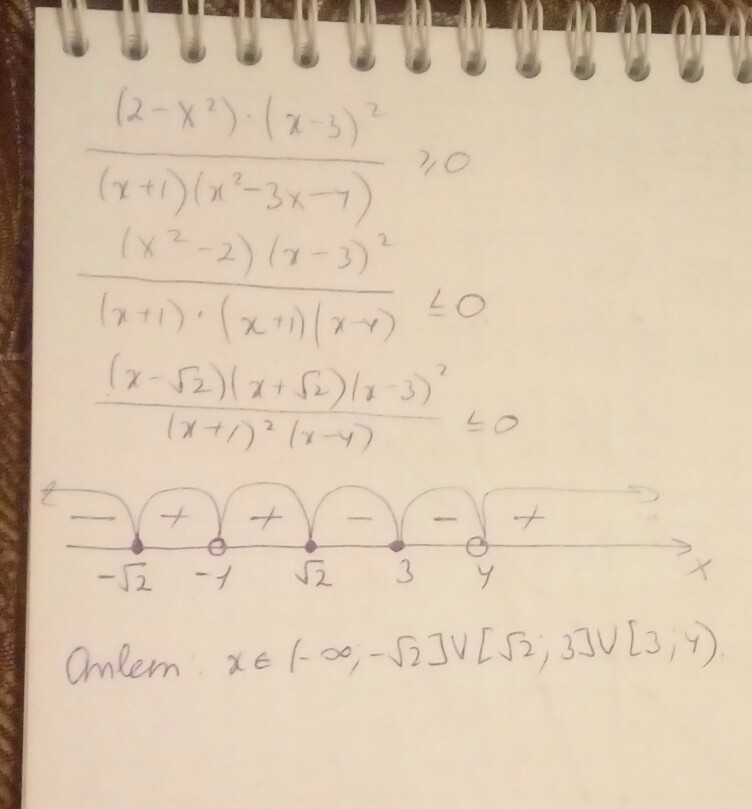 (2-x²)·(x-3)²
/
(x+1)(x²-3x-4) ≥0
(x²-2)(x-3)²
/
(x+1)·(x+1)(x-4) ≤0
(x-√2)(x+√2)(x-3)²
/
(x+1)²(x-4) ≤0
− + + − − +
-√2 -1 √2 3 4 x
Ответ: x∈(-∞,-√2]∪[√2;3]∪[3;4).